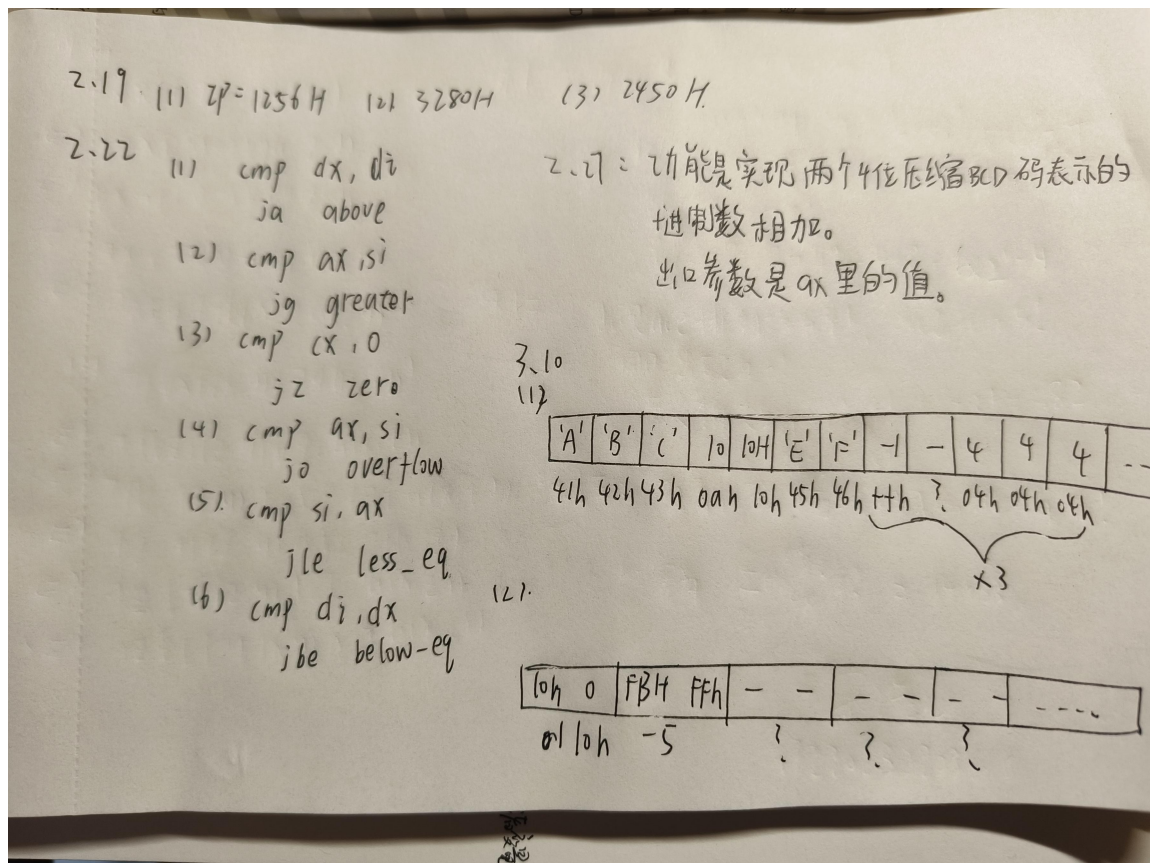 2.19 (1) IP=1256H (2) 3280H (3) 2450H.
2.22 (1) cmp dx, di
ja above
(2) cmp ax, si
jg greater
(3) cmp cx, 0
jz zero
(4) cmp ax, si
jo overflow
(5). cmp si, ax
jle less_eq
(6) cmp di, dx
jbe below-eq
2.27: 功能是实现两个4位压缩BCD码表示的
十进制数相加。
出口参数是ax里的值。
3.10
(1)
'A' 'B' 'C' 10 10H 'E' 'F' -1 - 4 4 4 ..
41h 42h 43h 0ah 10h 45h 46h ffh ? 04h 04h 04h
×3
(2).
10h 0 FBH FFh - - - - - - ....
10h -5 ? ? ?